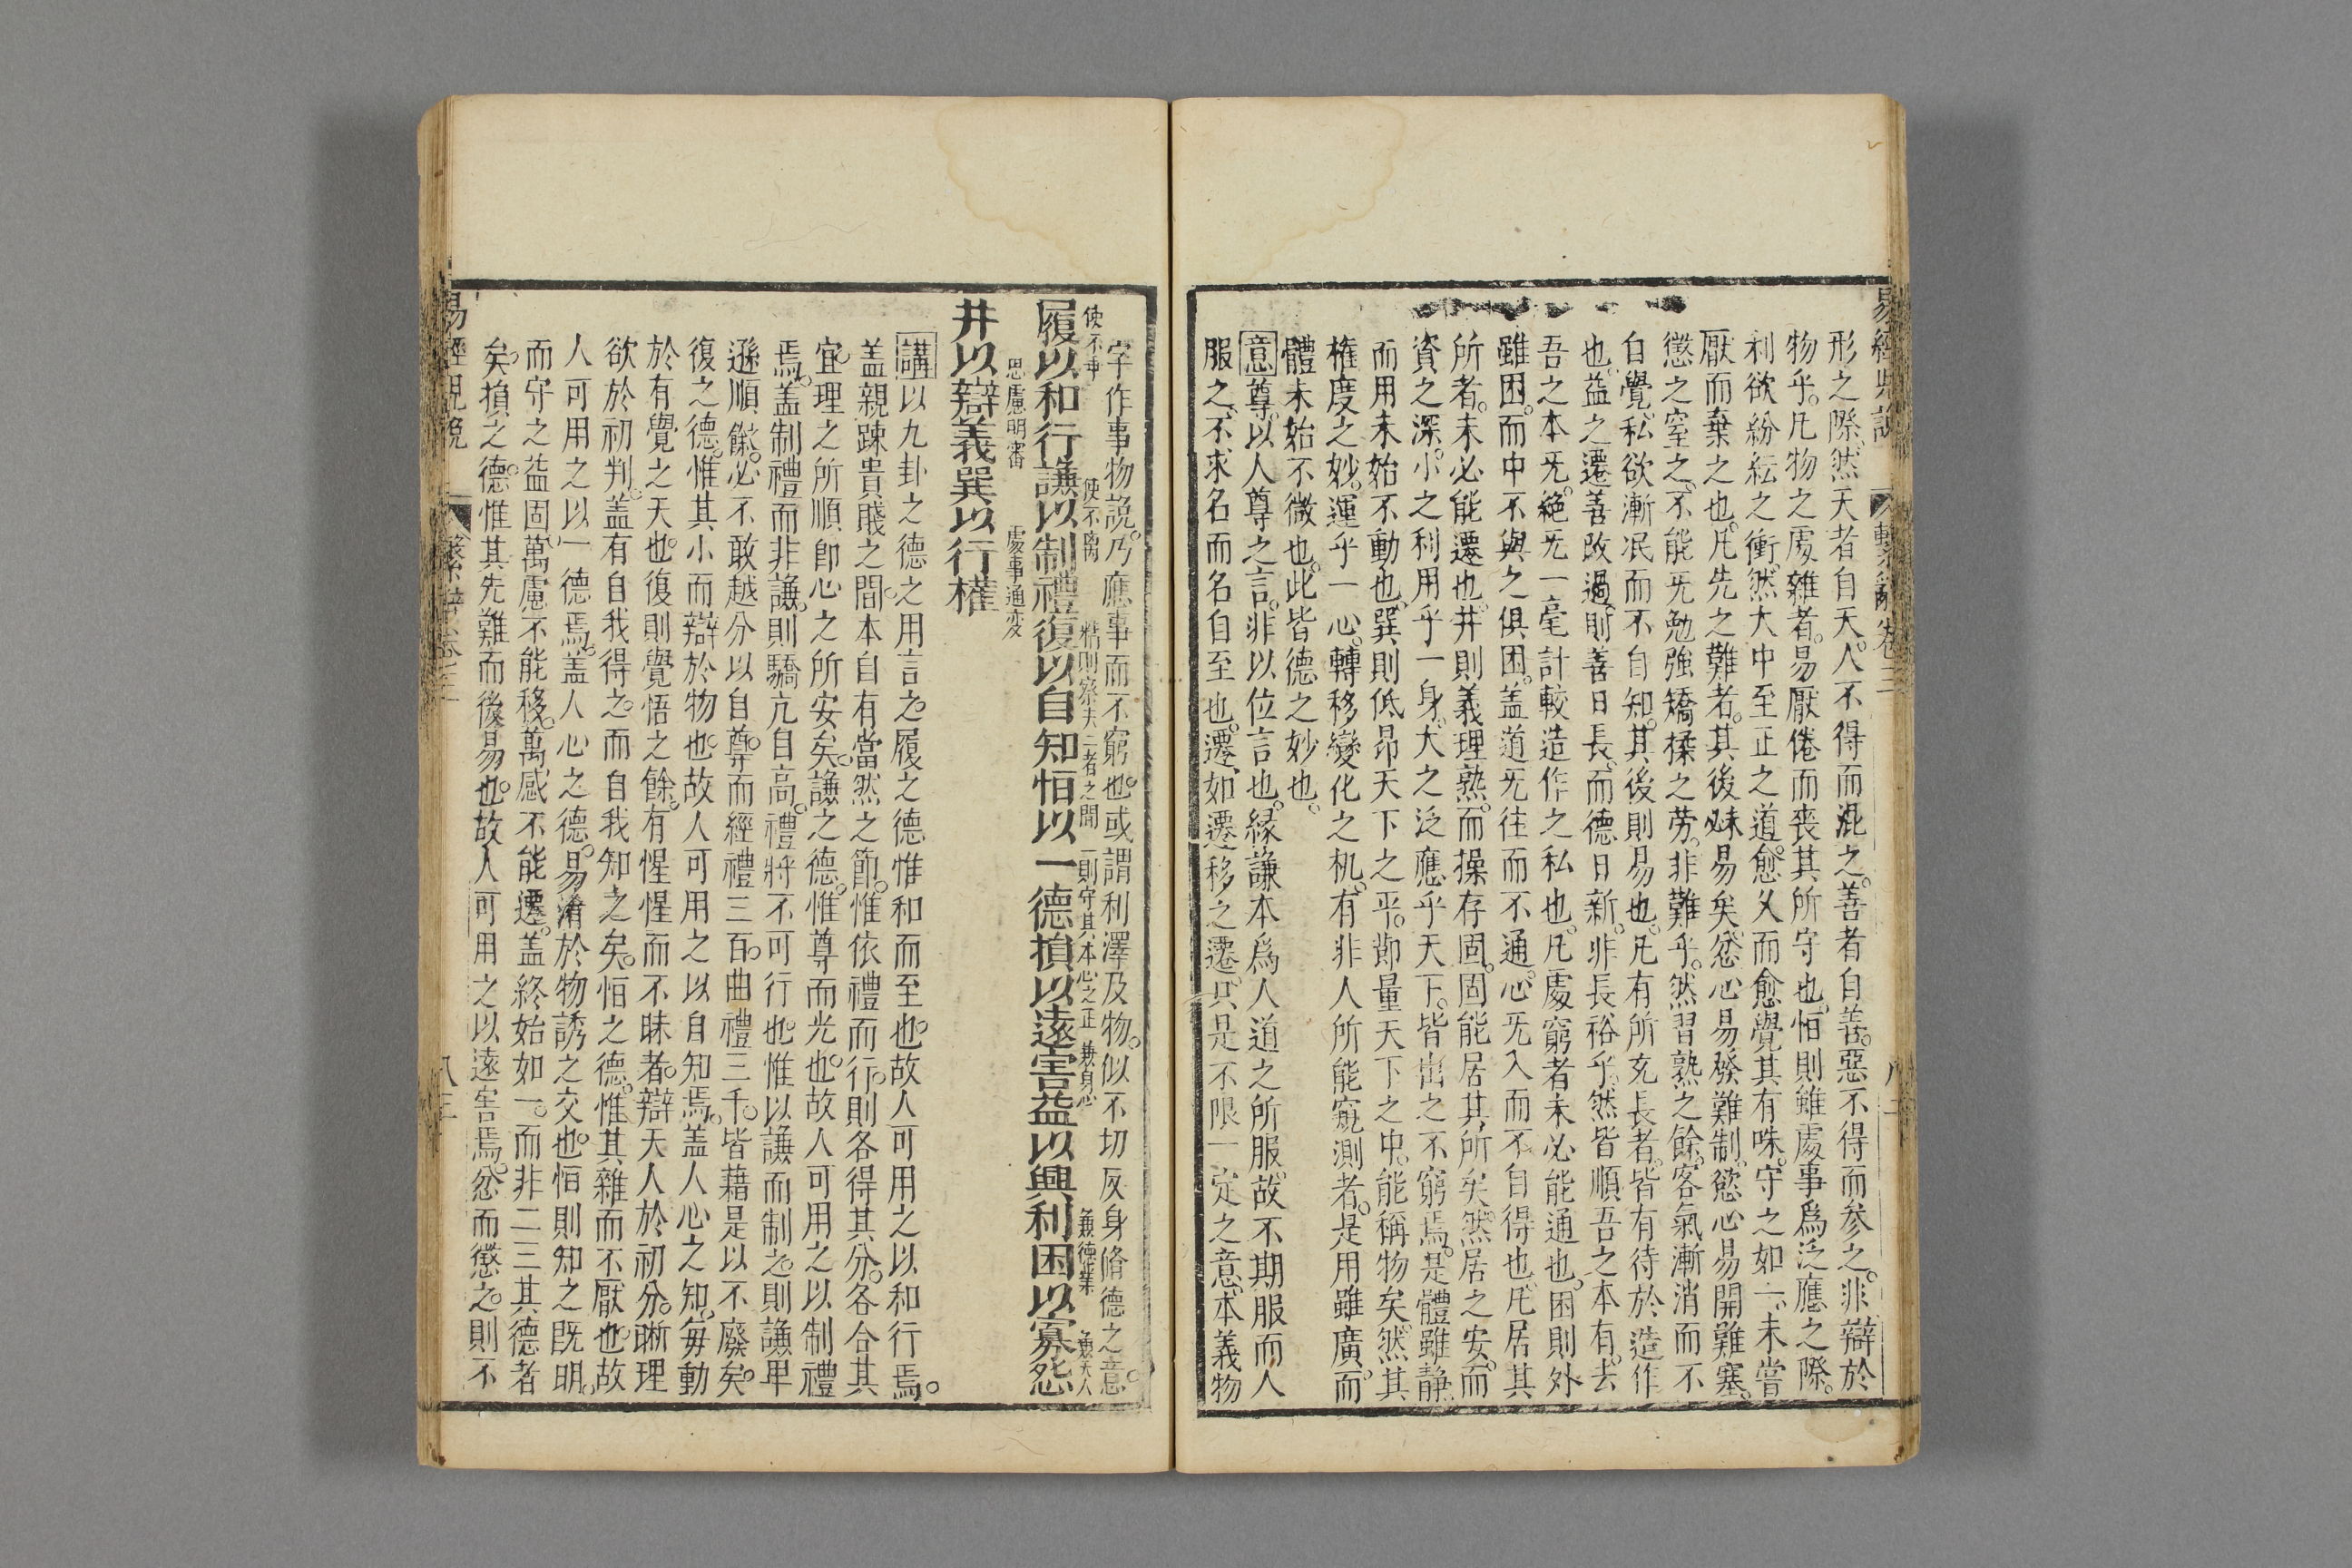 易經
繫辭 卷三
形之際。然天者自天。人不得而混之。善者自善。惡不得而參之。非辯於
物乎。凡物之處雜者。易厭倦而喪其所守也。恒則雖處事爲泛應之際。
利欲紛紜之衝。然大中至正之道。愈久而愈覺其有味。守之如一。未嘗
厭而棄之也。凡先之難者。其後必易矣。忿心易發難制。慾心易開難塞。
懲之窒之。不能旡勉強矯揉之勞。非難乎。然習熟之餘。客氣漸消而不
自覺。私欲漸泯而不自知。其後則易也。凡有所充長者。皆有待於造作
也。益之遷善改過。則善日長。而德日新。非長裕乎。然皆順吾之本有。去
吾之本旡。絕旡一毫計較造作之私也。凡處窮者未必能通也。困則外
雖困。而中不與之俱困。盖道旡往而不通。心旡入而不自得也。凡居其
所者。未必能遷也。井則義理熟。而操存固。固能居其所矣。然居之安。而
資之深。小之利用乎一身。大之泛應乎天下。皆出之不窮焉。是體雖静
而用未始不動也。巽則低昂天下之平。卽量天下之中。能稱物矣。然其
権度之妙。運乎一心。轉移變化之机。有非人所能窺測者。是用雖廣。而
體未始不微也。此皆德之妙也。
意尊。以人尊之言。非以位言也。縁謙本爲人道之所服。故不期服而人
服之。不求名而名自至也。遷。如遷移之遷。只是不限一定之意。本義物
字作事物說。乃應事而不窮也。或謂利澤及物。似不切反身脩德之意。
使不乖 使不离 精則察夫二者之間 一則守其本心之正 兼身心 兼德業 兼天人
履以和行謙以制禮復以自知恒以一德損以遠害益以興利困以寡怨
思慮明審 處事通変
井以辯義巽以行權
講以九卦之德之用言之。履之德惟和而至也。故人可用之以和行焉。
盖親踈貴賤之間。本自有當然之節。惟依禮而行。則各得其分。各合其
宜。理之所順。卽心之所安矣。謙之德。惟尊而光也。故人可用之以制禮
焉。盖制禮而非謙。則驕亢自高。禮將不可行也。惟以謙而制之。則謙卑
遜順餘。必不敢越分以自尊。而經禮三百。曲禮三千。皆藉是以不廢矣。
復之德。惟其小而辯於物也。故人可用之以自知焉。盖人心之知。每動
於有覺之天也。復則覺悟之餘。有惺惺而不昧者。辯天人於初分。晰理
欲於初判。盖有自我得之。而自我知之矣。恒之德。惟其雜而不厭也。故
人可用之以一德焉。盖人心之德。易淆於物誘之交也。恒則知之既明。
而守之益固。萬慮不能移。萬感不能遷。盖終始如一。而非二三其德者
矣。損之德。惟其先難而後易也。故人可用之以遠害焉。忿而懲之。則不
易經
繫辭卷三
八三